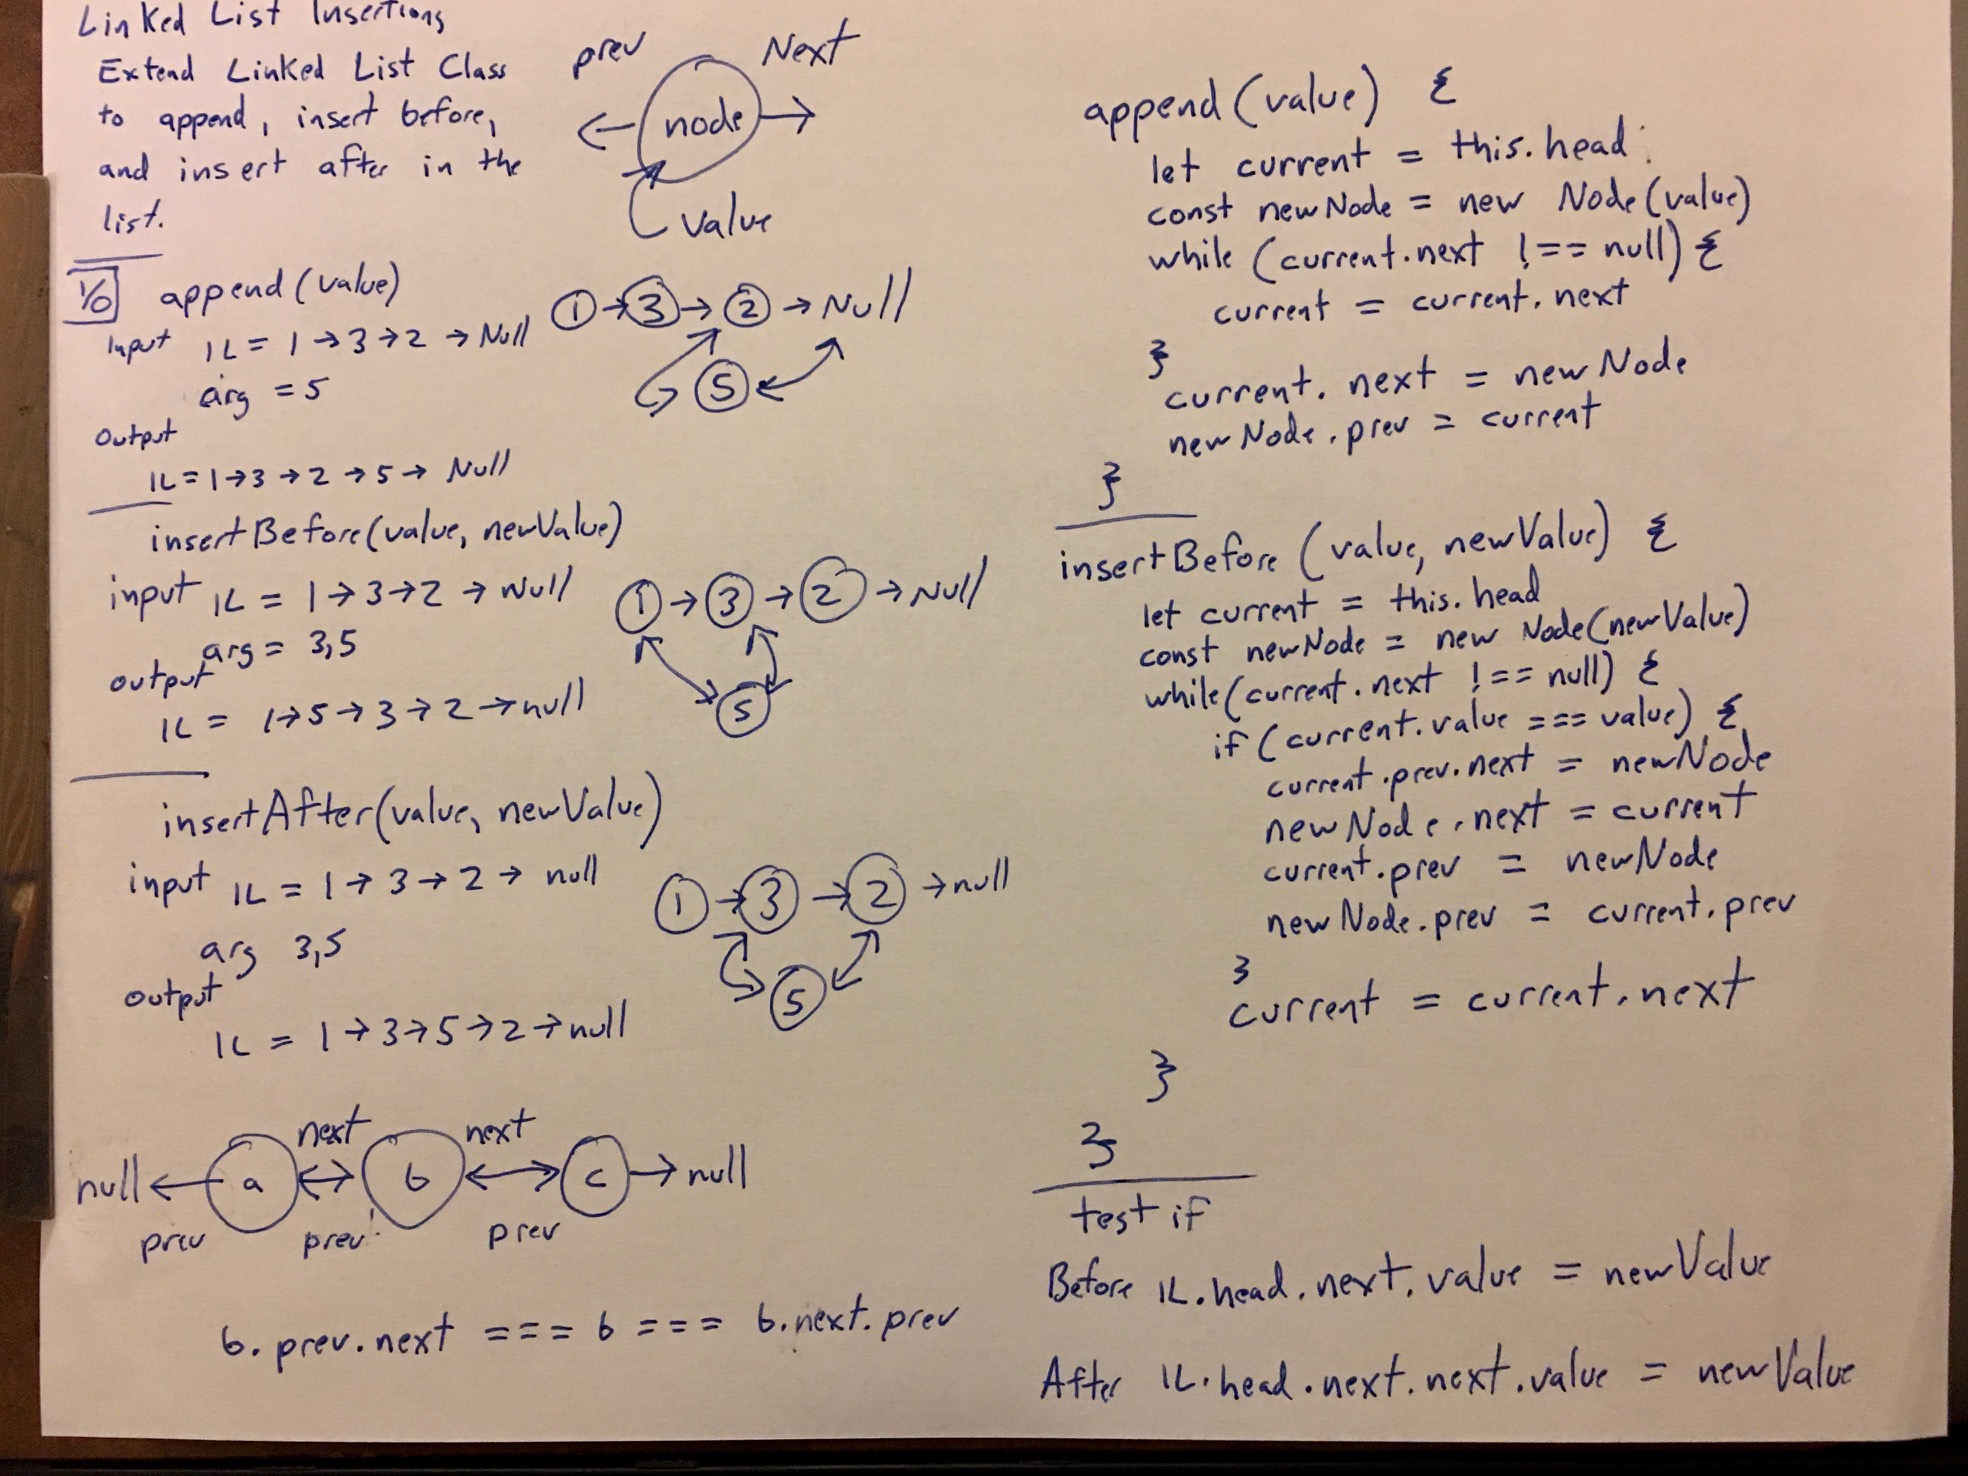 Linked List Insertions
Extend Linked List Class
to append, insert before,
and insert after in the
list.
prev
Next
node
value
I/O append(value)
Input LL = 1 → 3 → 2 → Null
arg = 5
Output
LL = 1 → 3 → 2 → 5 → Null
1 → 3 → 2 → Null
5
insertBefore(value, newValue)
input LL = 1 → 3 → 2 → Null
arg = 3,5
output
LL = 1 → 5 → 3 → 2 → null
1 → 3 → 2 → Null
5
insertAfter(value, newValue)
input LL = 1 → 3 → 2 → null
arg 3,5
output
LL = 1 → 3 → 5 → 2 → null
1 → 3 → 2 → null
5
next next
null ← a ↔ b ↔ c → null
prev prev prev
b.prev.next === b === b.next.prev
append(value) {
let current = this.head;
const newNode = new Node(value)
while (current.next !== null) {
current = current.next
}
current.next = newNode
newNode.prev = current
}
insertBefore (value, newValue) {
let current = this.head
const newNode = new Node(newValue)
while(current.next !== null) {
if (current.value === value) {
current.prev.next = newNode
newNode.next = current
current.prev = newNode
newNode.prev = current.prev
}
current = current.next
}
}
test if
Before LL.head.next.value = newValue
After LL.head.next.next.value = newValue